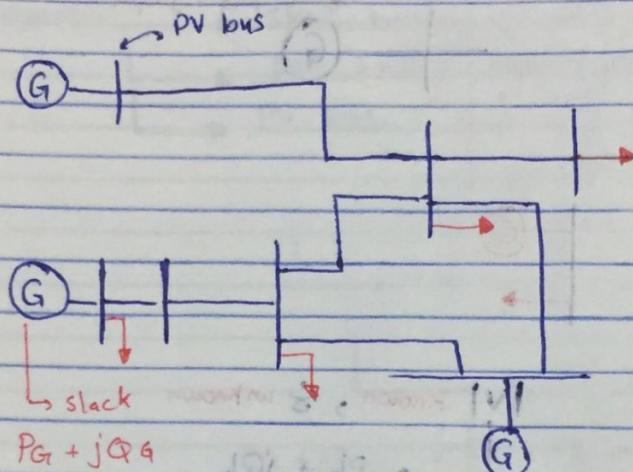 PV bus
G
G
slack
PG + jQG
G